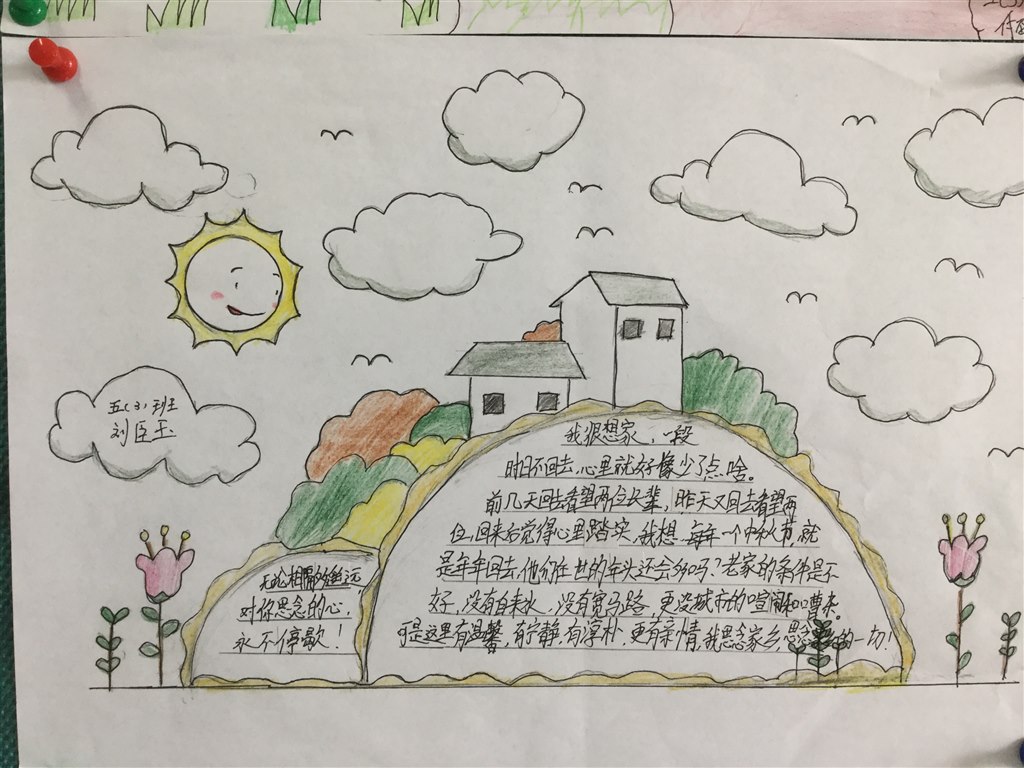 五(3)班
刘臣玉
我很想家,一段
时日不回去,心里就好像少了点啥。
前几天回去看望两位长辈,昨天又回去看望两
位,回来后觉得心里踏实。我想,每年一个中秋节,就
是年年回去,他们在世的年头还会多吗?老家的条件是不
好,没有自来水,没有宽马路,更没城市的喧闹和嘈杂。
可是这里有温馨,有宁静,有淳朴,更有亲情,我思念家乡,思念 的一切!
无论相隔多遥远,
对你思念的心,
永不停歇!